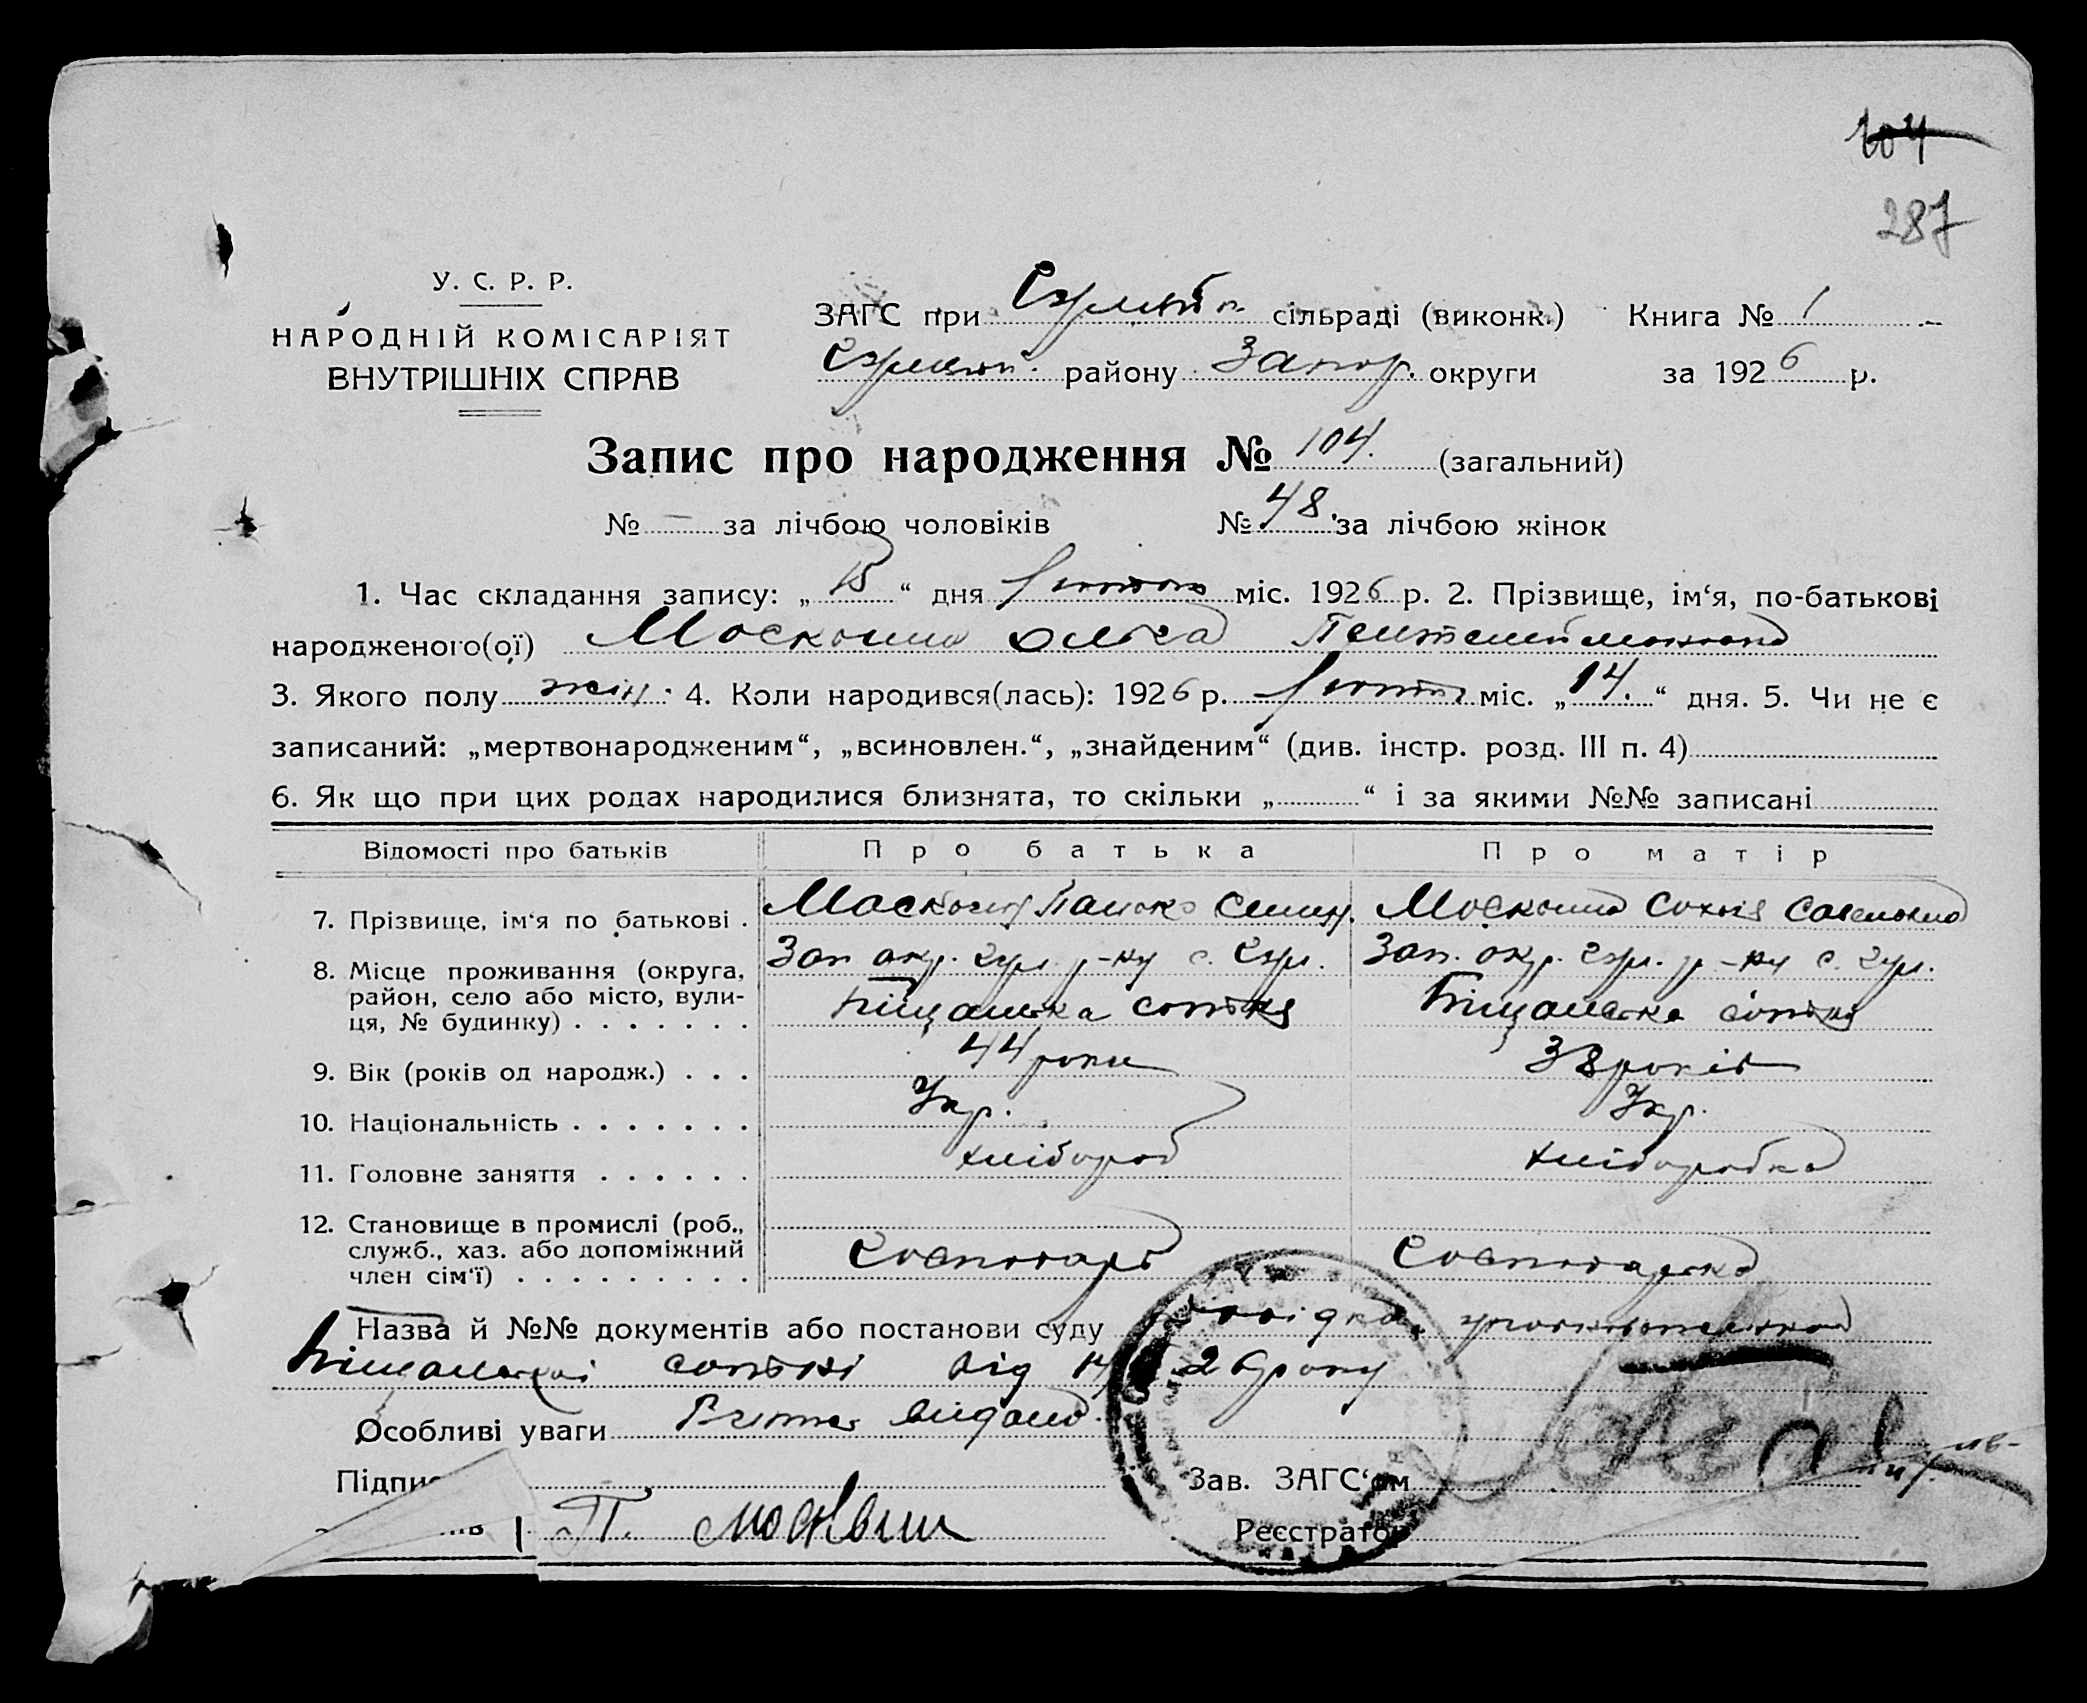 104
287
У. С. Р. Р.
НАРОДНІЙ КОМІСАРІЯТ
ВНУТРІШНІХ СПРАВ
ЗАГС при сільраді (виконк.) Книга № 1
району Запор. округи за 1926 р.
Запис про народження № 104. (загальний)
№ - за лічбою чоловіків № 48. за лічбою жінок
1. Час складання запису: „15“ дня лютого міс. 1926 р. 2. Прізвище, ім‘я, по-батькові
народженого(ої) Ольга
3. Якого полу жін. 4. Коли народився(лась): 1926 р. лютого міс. „14.“ дня. 5. Чи не є
записаний: „мертвонародженим“, „всиновлен.“, „знайденим“ (див. інстр. розд. III п. 4)
6. Як що при цих родах народилися близнята, то скільки „ “ і за якими №№ записані
Відомості про батьків Про батька Про матір
7. Прізвище, ім‘я по батькові .
8. Місце проживання (округа, Зап. окр. р-ку с. Зап. окр. р-ку с.
район, село або місто, вули- Піщанська сотня Піщанська сотня
ця, № будинку) . . . . . . .
9. Вік (років од народж.) . . . 44 роки 38 років
10. Національність . . . . . . . Укр. Укр.
11. Головне заняття . . . . . . хлібороб хліборобка
12. Становище в промислі (роб.,
служб., хаз. або допоміжний Господарь Господарька
член сім‘ї) . . . . . . . . . .
Назва й №№ документів або постанови суду Довідка уповноваженого
Піщанської сотні від 26 року
Особливі уваги видано.
Підпис Зав. ЗАГС‘ом
П. Реєстратор